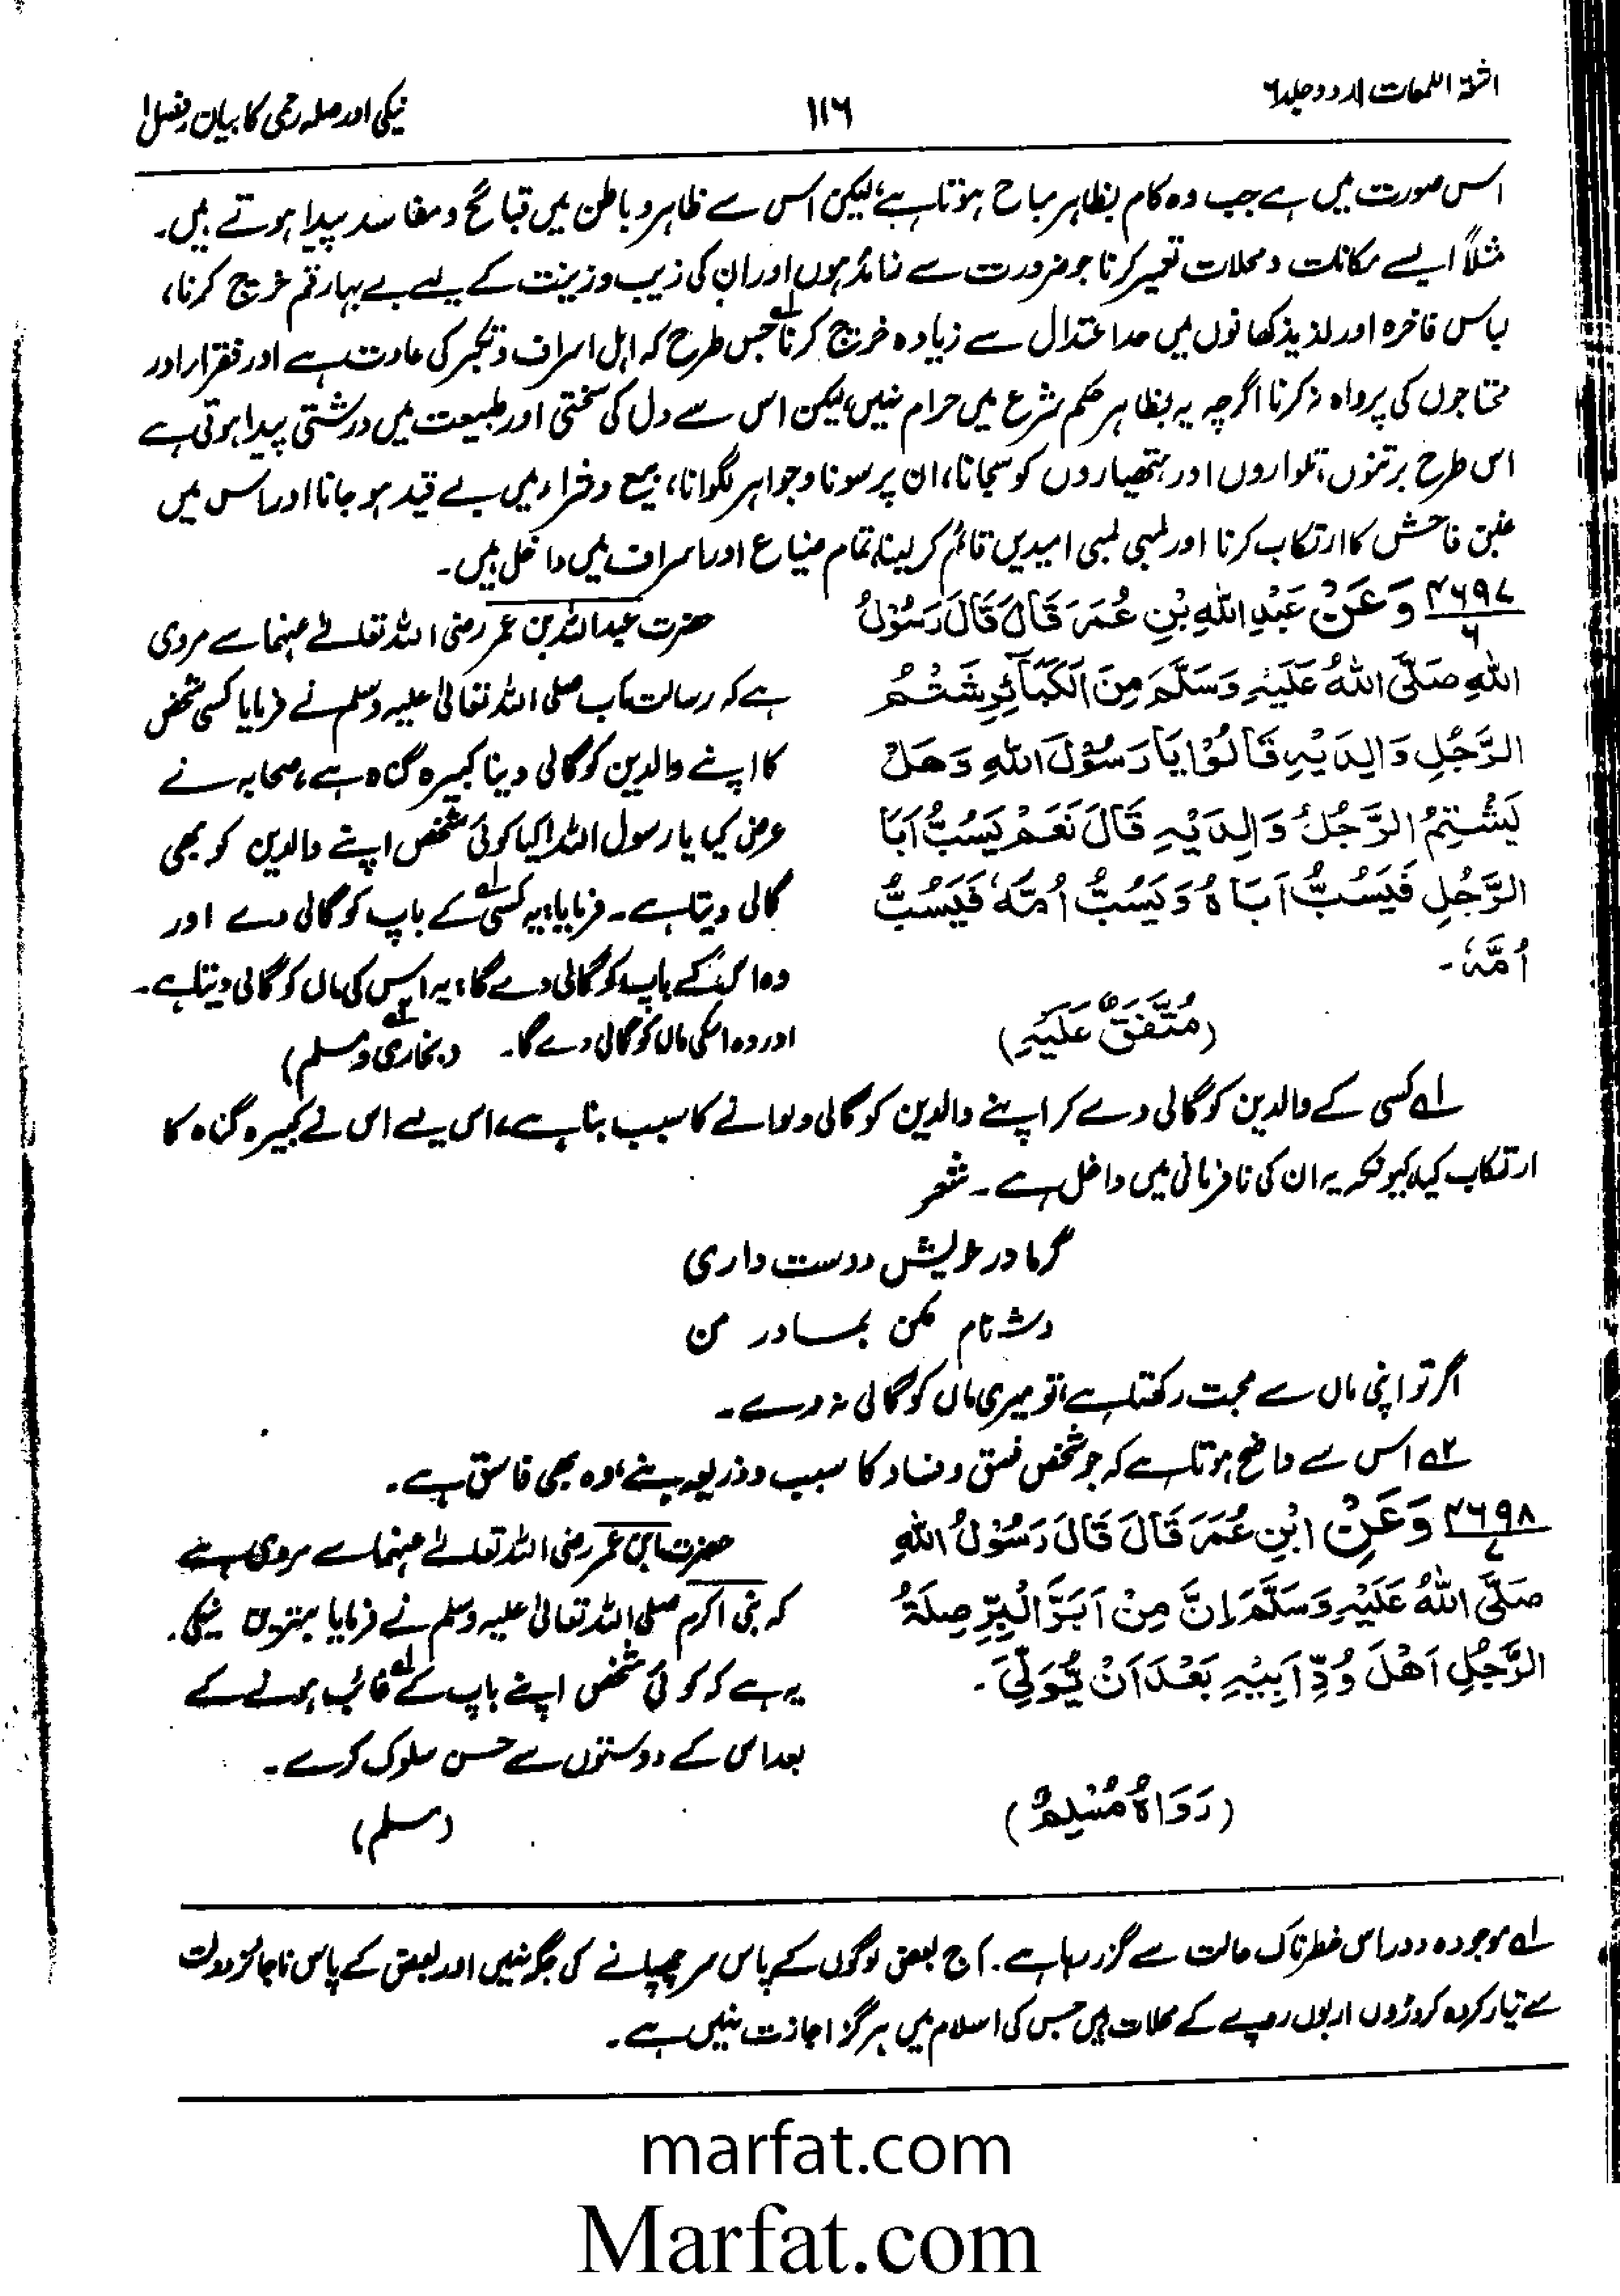 اشعۃ اللمعات اردو جلد ۶
۱۱۶
نیکی اور صلہ رحمی کا بیان فصل ۱
اس صورت میں ہے جب وہ کام بظاہر مباح ہوتا ہے، لیکن اس سے ظاہر و باطن میں قبائح و مفاسد پیدا ہوتے ہیں۔
مثلاً ایسے مکانات و محلات تعمیر کرنا جو ضرورت سے زائد ہوں اور ان کی زیب و زینت کے لیے بے بہا رقم خرچ کرنا،
لباس فاخرہ اور لذیذ کھانوں میں حد اعتدال سے زیادہ خرچ کرنا لہ جس طرح کہ اہل اسراف و تکبر کی عادت ہے اور فقراء اور
محتاجوں کی پرواہ نہ کرنا اگرچہ یہ بظاہر حکم شرع میں حرام نہیں، لیکن اس سے دل کی سختی اور طبیعت میں درشتی پیدا ہوتی ہے
اس طرح برتنوں، تلواروں اور ہتھیاروں کو سجانا، ان پر سونا و جواہر لگوانا، بیع و شراء میں بے قید ہو جانا اور اس میں
غبن فاحش کا ارتکاب کرنا اور لمبی لمبی امیدیں قائم کر لینا، تمام ضیاع اور اسراف میں داخل ہیں۔
۴۶۹۷
۶
وَعَنْ عَبْدِ اللهِ بْنِ عُمَرَ قَالَ قَالَ رَسُوْلُ
اللهِ صَلَّى اللهُ عَلَيْهِ وَسَلَّمَ مِنَ الْكَبَآئِرِ شَتْمُ
الرَّجُلِ وَالِدَيْهِ قَالُوْا يَا رَسُوْلَ اللهِ وَهَلْ
يَشْتِمُ الرَّجُلُ وَالِدَيْهِ قَالَ نَعَمْ يَسُبُّ اَبَا
الرَّجُلِ فَيَسُبُّ اَبَاهُ وَيَسُبُّ اُمَّهٗ فَيَسُبُّ
اُمَّهٗ۔
(مُتَّفَقٌ عَلَيْهِ)
حضرت عبداللہ بن عمر رضی اللہ تعالٰے عنہما سے مروی
ہے کہ رسالت مآب صلی اللہ تعالیٰ علیہ وسلم نے فرمایا کسی شخص
کا اپنے والدین کو گالی دینا کبیرہ گناہ ہے، صحابہ نے
عرض کیا یا رسول اللہ! کیا کوئی شخص اپنے والدین کو بھی
گالی دیتا ہے۔ فرمایا: یہ کسی لہ کے باپ کو گالی دے اور
وہ اس کے باپ کو گالی دے گا؛ یہ اس کی ماں کو گالی دیتا ہے۔
اور وہ اسکی ماں کو گالی دے گا۔ (بخاری و مسلم)
لہ کسی کے والدین کو گالی دے کر اپنے والدین کو گالی دلوانے کا سبب بنا ہے، اس لیے اس نے کبیرہ گناہ کا
ارتکاب کیا، کیونکہ یہ ان کی نافرمانی میں داخل ہے۔ شعر
گر مادر خویش دوست داری
دشنام مکن بمادر من
اگر تو اپنی ماں سے محبت رکھتا ہے، تو میری ماں کو گالی نہ دے۔
۲ہ اس سے واضح ہوتا ہے کہ جو شخص فسق و فساد کا سبب و ذریعہ بنے، وہ بھی فاسق ہے۔
۴۶۹۸
۷
وَعَنِ ابْنِ عُمَرَ قَالَ قَالَ رَسُوْلُ اللهِ
صَلَّى اللهُ عَلَيْهِ وَسَلَّمَ اِنَّ مِنْ اَبَرِّ الْبِرِّ صِلَةُ
الرَّجُلِ اَهْلَ وُدِّ اَبِيْهِ بَعْدَ اَنْ يُّوَلِّيَ۔
(رَوَاهُ مُسْلِمٌ)
حضرت ابن عمر رضی اللہ تعالٰے عنہما سے مروی ہے
کہ نبی اکرم صلی اللہ تعالیٰ علیہ وسلم نے فرمایا بہترین نیکی
یہ ہے کہ کوئی شخص اپنے باپ کے لہ غائب ہونے کے
بعد اس کے دوستوں سے حسن سلوک کرے۔
(مسلم)
لہ موجودہ دور اس خطرناک حالت سے گزر رہا ہے۔ آج بعض لوگوں کے پاس سر چھپانے کی جگہ نہیں اور بعض کے پاس ناجائز دولت
سے تیار کردہ کروڑوں اربوں روپے کے محلات ہیں جس کی اسلام میں ہرگز اجازت نہیں ہے۔
marfat.com
Marfat.com